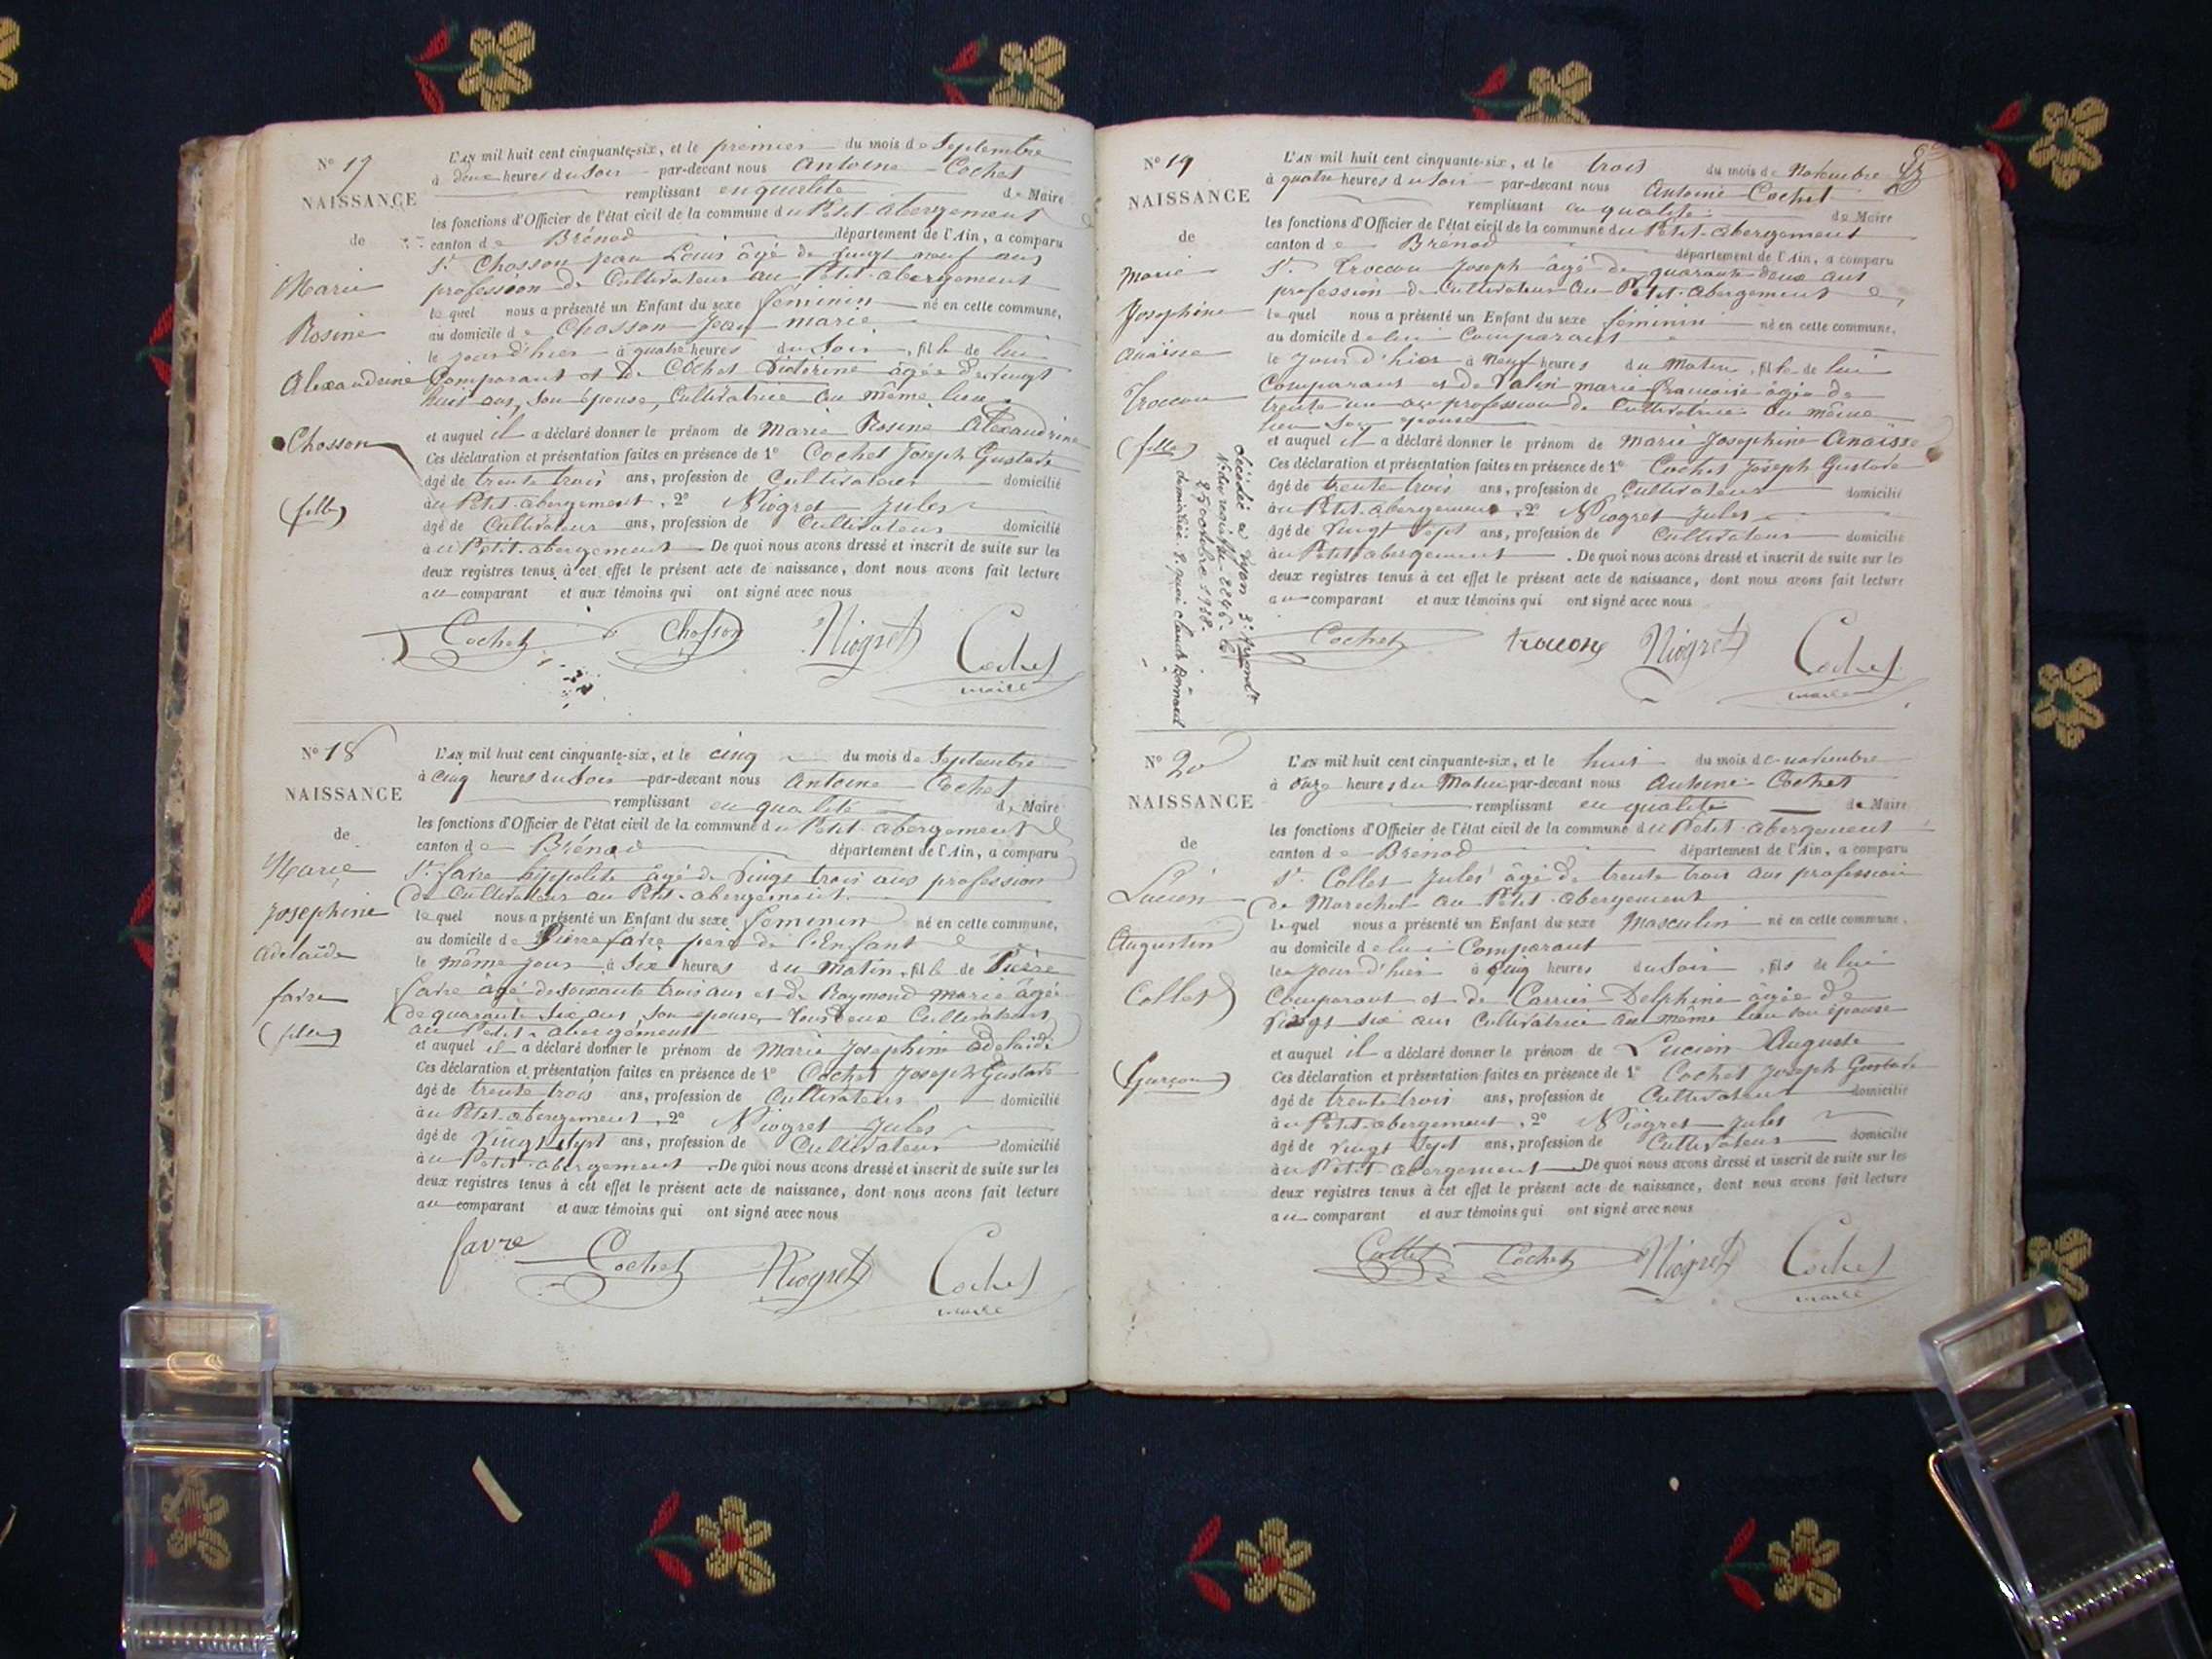 N° 17
NAISSANCE
de
Marie
Rosine
Alexandrine
Chosson
(fille)
L'AN mil huit cent cinquante-six, et le premier du mois de Septembre
à deux heures du Soir par-devant nous Antoine Cochet
remplissant en qualité de Maire
les fonctions d'Officier de l'état civil de la commune du Petit-abergement
canton de Brénod département de l'Ain, a comparu
Sr Chosson Jean Louis âgé de vingt neuf ans
profession de Cultivateur au Petit-abergement
lequel nous a présenté un Enfant du sexe féminin né en cette commune,
au domicile de Chosson Jean marie
le jour d'hier à quatre heures du Soir, fille de lui
Comparant et de Cochet Victorine âgée de vingt
huit ans, son épouse, Cultivatrice au même lieu
et auquel il a déclaré donner le prénom de Marie Rosine Alexandrine
Ces déclaration et présentation faites en présence de 1° Cochet Joseph Gustave
âgé de trente trois ans, profession de Cultivateur domicilié
au Petit-abergement, 2° Niogret Jules
âgé de Cultivateur ans, profession de Cultivateur domicilié
au Petit-abergement De quoi nous avons dressé et inscrit de suite sur les
deux registres tenus à cet effet le présent acte de naissance, dont nous avons fait lecture
au comparant et aux témoins qui ont signé avec nous
Cochet Chosson Niogret Cochet
maire
N° 18
NAISSANCE
de
Marie
Josephine
adelaïde
favre
(fille)
L'AN mil huit cent cinquante-six, et le cinq du mois de Septembre
à cinq heures du Soir par-devant nous Antoine Cochet
remplissant en qualité de Maire
les fonctions d'Officier de l'état civil de la commune du Petit-abergement
canton de Brénod département de l'Ain, a comparu
Sr favre hippolite âgé de vingt trois ans profession
de Cultivateur au Petit-abergement
lequel nous a présenté un Enfant du sexe féminin né en cette commune,
au domicile de Pierre favre père de l'Enfant
le même jour à Six heures du Matin, fille de Pierre
favre âgé de soixante trois ans et de Raymond marie âgée
de quarante six ans, son épouse, tous deux Cultivateurs
au Petit-abergement
et auquel il a déclaré donner le prénom de Marie Josephine adelaïde
Ces déclaration et présentation faites en présence de 1° Cochet Joseph Gustave
âgé de trente trois ans, profession de Cultivateur domicilié
au Petit-abergement, 2° Niogret Jules
âgé de vingt sept ans, profession de Cultivateur domicilié
au Petit-abergement De quoi nous avons dressé et inscrit de suite sur les
deux registres tenus à cet effet le présent acte de naissance, dont nous avons fait lecture
au comparant et aux témoins qui ont signé avec nous
favre Cochet Niogret Cochet
maire
N° 19
NAISSANCE
de
Marie
Josephine
Anaïsse
Troccon
(fille)
Décédée à Lyon 3e Arrondt
N° du registre 2246 - le
25 octobre 1938 -
domiciliée 8 quai Claude Bernard
L'AN mil huit cent cinquante-six, et le trois du mois de Novembre
à quatre heures du Soir par-devant nous Antoine Cochet
remplissant en qualité de Maire
les fonctions d'Officier de l'état civil de la commune du Petit-abergement
canton de Brénod département de l'Ain, a comparu
Sr Troccon Joseph âgé de quarante deux ans
profession de Cultivateur au Petit-abergement
lequel nous a présenté un Enfant du sexe féminin né en cette commune,
au domicile de lui Comparant
le Jour d'hier à Neuf heures du Matin, fille de lui
Comparant et de Valin marie françoise âgée de
trente un ans profession de Cultivatrice au même
lieu Son épouse
et auquel il a déclaré donner le prénom de Marie Josephine Anaïsse
Ces déclaration et présentation faites en présence de 1° Cochet Joseph Gustave
âgé de trente trois ans, profession de Cultivateur domicilié
au Petit-abergement, 2° Niogret Jules
âgé de vingt sept ans, profession de Cultivateur domicilié
au Petit-abergement. De quoi nous avons dressé et inscrit de suite sur les
deux registres tenus à cet effet le présent acte de naissance, dont nous avons fait lecture
au comparant et aux témoins qui ont signé avec nous
Cochet troccon Niogret Cochet
maire
N° 20
NAISSANCE
de
Lucien
Augustin
Collet
(Garçon)
L'AN mil huit cent cinquante-six, et le huit du mois de novembre
à onze heures du Matin par-devant nous Antoine Cochet
remplissant en qualité de Maire
les fonctions d'Officier de l'état civil de la commune du Petit-abergement
canton de Brénod département de l'Ain, a comparu
Sr Collet Jules âgé de trente trois ans profession
de Marechal au Petit-abergement
lequel nous a présenté un Enfant du sexe Masculin né en cette commune,
au domicile de lui Comparant
le Jour d'hier à Cinq heures du Soir, fils de lui
Comparant et de Carrier Delphine âgée de
vingt six ans Cultivatrice au même lieu son épouse
et auquel il a déclaré donner le prénom de Lucien Auguste
Ces déclaration et présentation faites en présence de 1° Cochet Joseph Gustave
âgé de trente trois ans, profession de Cultivateur domicilié
au Petit-abergement, 2° Niogret Jules
âgé de vingt sept ans, profession de Cultivateur domicilié
au Petit-abergement De quoi nous avons dressé et inscrit de suite sur les
deux registres tenus à cet effet le présent acte de naissance, dont nous avons fait lecture
au comparant et aux témoins qui ont signé avec nous
Collet Cochet Niogret Cochet
maire